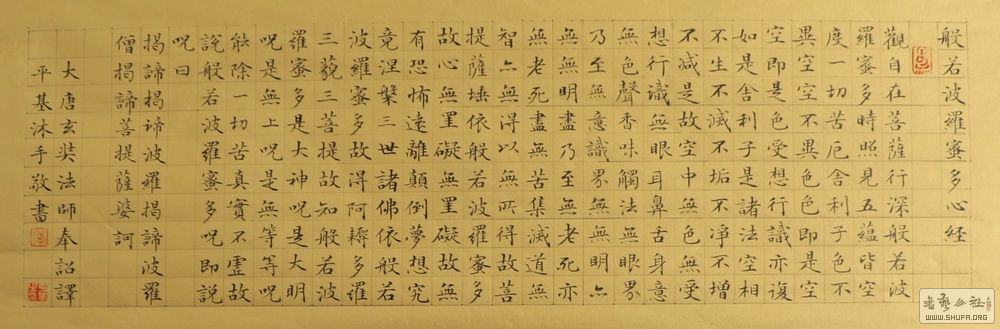 般若波羅蜜多心経
觀自在菩薩行深般若波
羅蜜多時照見五蘊皆空
度一切苦厄舍利子色不
異空空不異色色即是空
空即是色受想行識亦復
如是舍利子是諸法空相
不生不滅不垢不淨不增
不減是故空中無色無受
想行識無眼耳鼻舌身意
無色聲香味觸法無眼界
乃至無意識界無無明亦
無無明盡乃至無老死亦
無老死盡無苦集滅道無
智亦無得以無所得故菩
提薩埵依般若波羅蜜多
故心無罣礙無罣礙故無
有恐怖遠離顛倒夢想究
竟涅槃三世諸佛依般若
波羅蜜多故得阿耨多羅
三藐三菩提故知般若波
羅蜜多是大神呪是大明
呪是無上呪是無等等呪
能除一切苦真實不虛故
說般若波羅蜜多呪即說
呪曰
揭諦揭諦波羅揭諦波羅
僧揭諦菩提薩婆訶
大唐玄奘法師奉詔譯
平基沐手敬書
书艺公社
WWW.SHUFA.ORG